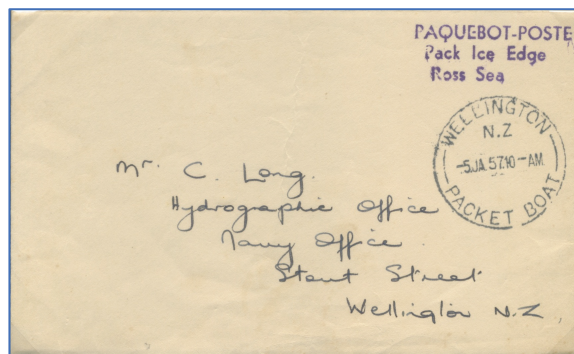 PAQUEBOT-POSTE
Pack Ice Edge
Ross Sea
WELLINGTON
N.Z
-5JA.57.10-AM
PACKET BOAT
Mr. C. Long.
Hydrographic Office
Navy Office
Stout Street
Wellington N.Z.